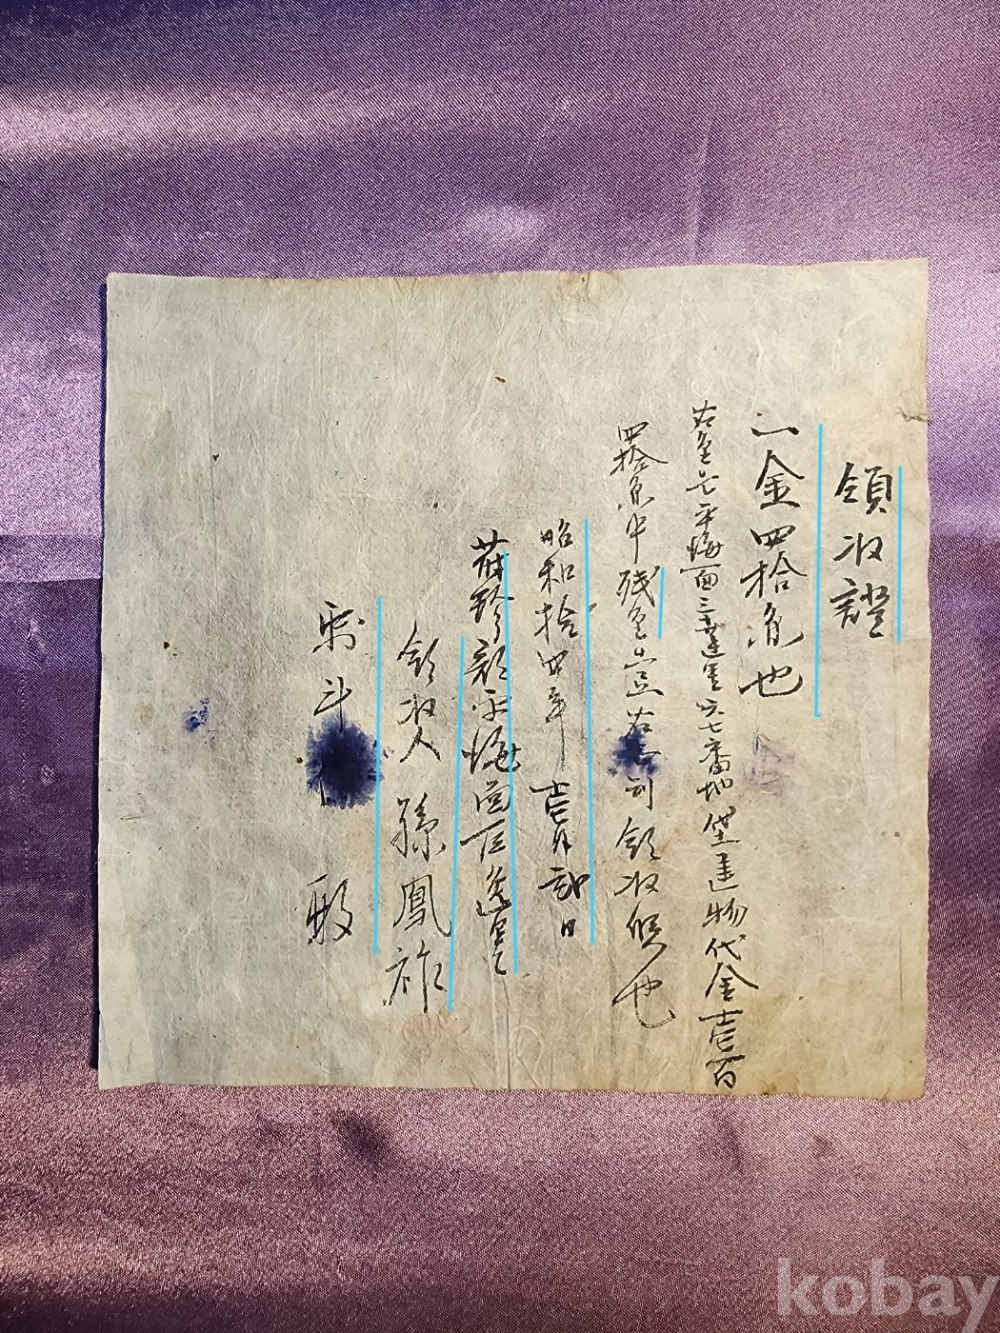 領收證
一金四拾圓也
右金은平海面三達里六七番地垈建物代金壹百
四拾圓中殘金 右 領收候也
昭和拾四年壹月貳日
蔚珍郡平海面
領收人 孫鳳祚
斗 殿
kobay